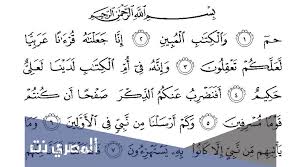 بِسْمِ ٱللَّهِ ٱلرَّحْمَٰنِ ٱلرَّحِيمِ
حمٓ ١ وَٱلْكِتَٰبِ ٱلْمُبِينِ ٢ إِنَّا جَعَلْنَٰهُ قُرْءَٰنًا عَرَبِيًّا
لَّعَلَّكُمْ تَعْقِلُونَ ٣ وَإِنَّهُۥ فِىٓ أُمِّ ٱلْكِتَٰبِ لَدَيْنَا لَعَلِىٌّ
حَكِيمٌ ٤ أَفَنَضْرِبُ عَنكُمُ ٱلذِّكْرَ صَفْحًا أَن كُنتُمْ
قَوْمًا مُّسْرِفِينَ ٥ وَكَمْ أَرْسَلْنَا مِن نَّبِىٍّ فِى ٱلْأَوَّلِينَ ٦ وَمَا
يَأْتِيهِم مِّن نَّبِىٍّ إِلَّا كَانُوا۟ بِهِۦ يَسْتَهْزِءُونَ ٧
المصري نت